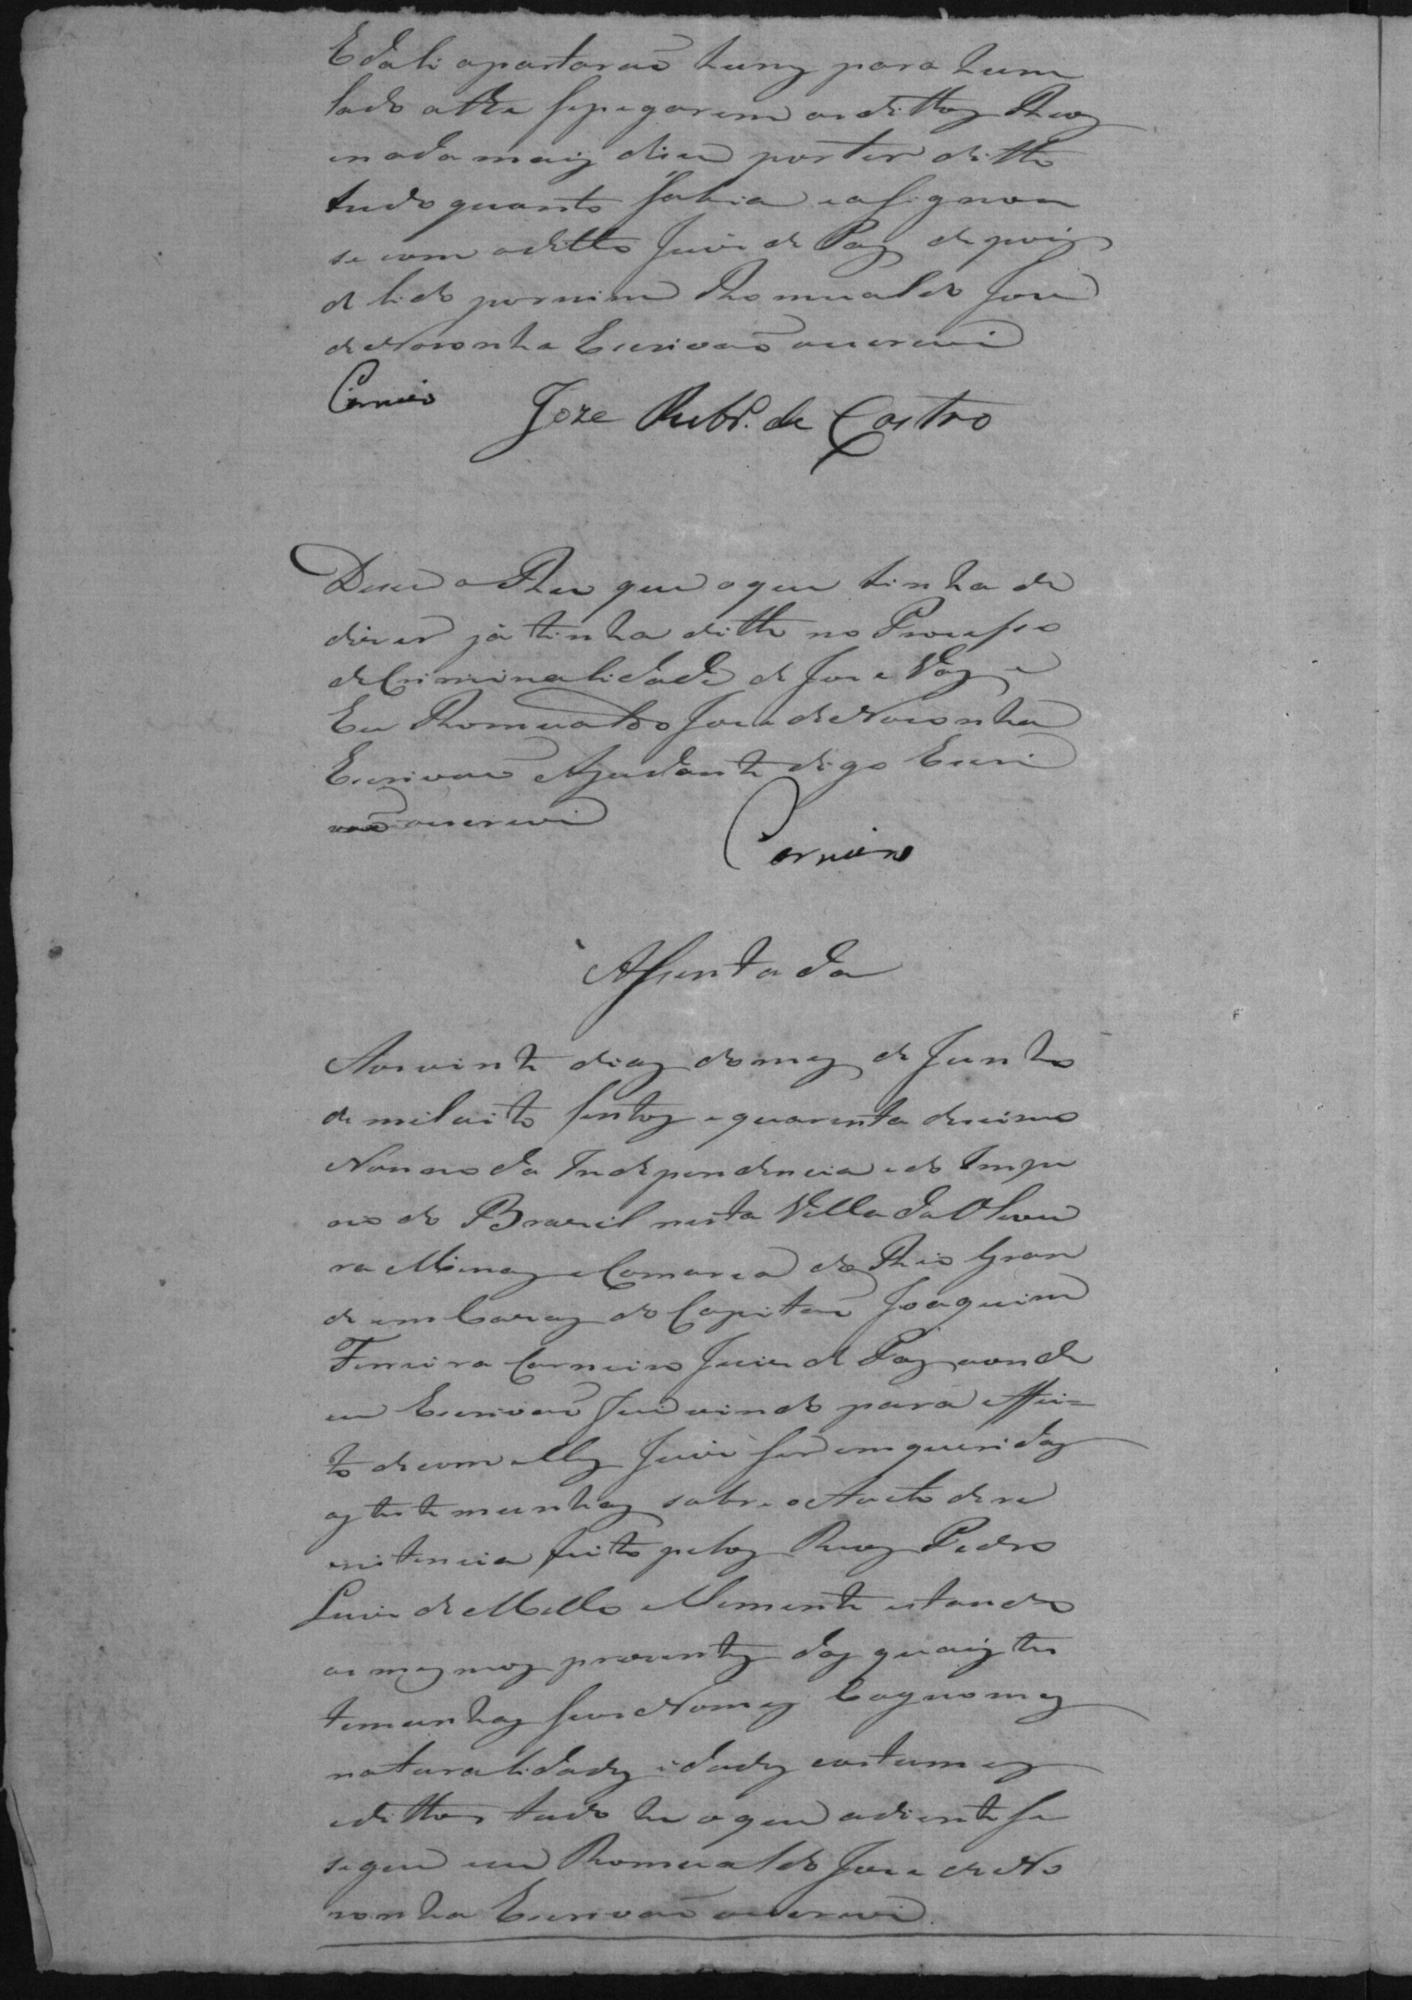 E dali apartaraõ huns para hum
lado athe se pegarem os dittos Reos
e nada mais dice por ter ditto
tudo quanto sabia e asignou
se com o ditto Juis de Pas depois
de lido por mim Romualdo Jose
de Noronha Escrivaõ o escrevi
Carneiro Joze Rubr. de Castro
Dice o Reo que o que tinha de
dizer já tinha ditto no Processo
de Criminalidade de Jose Vas e
Eu Romualdo Jose de Noronha
Escrivaõ Ajudante digo Escri
vaõ o escrevi
Carneiro
Assentada
Aos vinte dias do mes de Junho
de mil oito sentos e quarenta decimo
Nono da Independencia e do Impe
rio do Brazil nesta Villa da Olivei
ra Minas e Comarca do Rio Gran
de em Cazas do Capitaõ Joaquim
Ferreira Carneiro Juis de Pas aonde
eu Escrivaõ fui vindo para effei=
to de com elle Juis ser emqueridas
as testemunhas sobre o Auto de re
zistencia feito pelos Reos Pedro
Luis de Mello e Clemente estando
os mesmos prezentes das quais tes
temunhas seus Nomes Cognomes
naturalidades idades costumes
e dittos tudo he o que adiente se
segue eu Romualdo Jose de No
ronha Escrivaõ o escrevi.